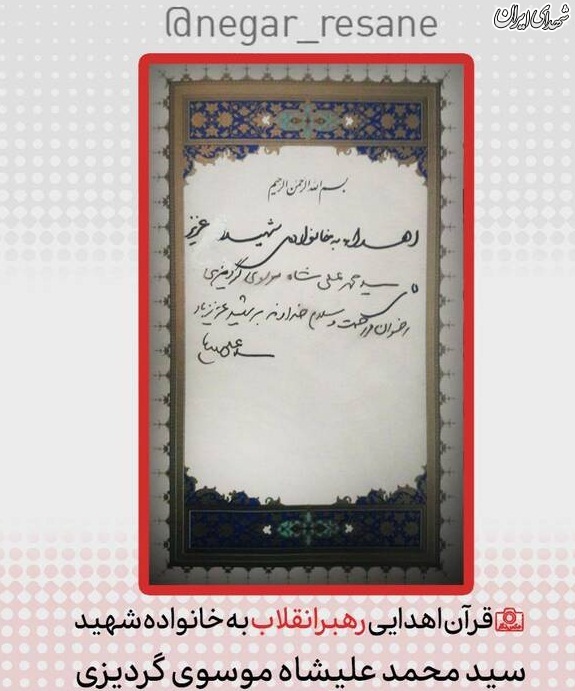 @negar_resane
شهدای ایران
بسم الله الرحمن الرحیم
اهداء به خانواده‌ی شهید عزیز
سید محمد علی شاه موسوی گردیزی
رضوان و رحمت و سلام خداوند بر شهید عزیز باد
قرآن اهدایی رهبر انقلاب به خانواده شهید
سید محمد علیشاه موسوی گردیزی